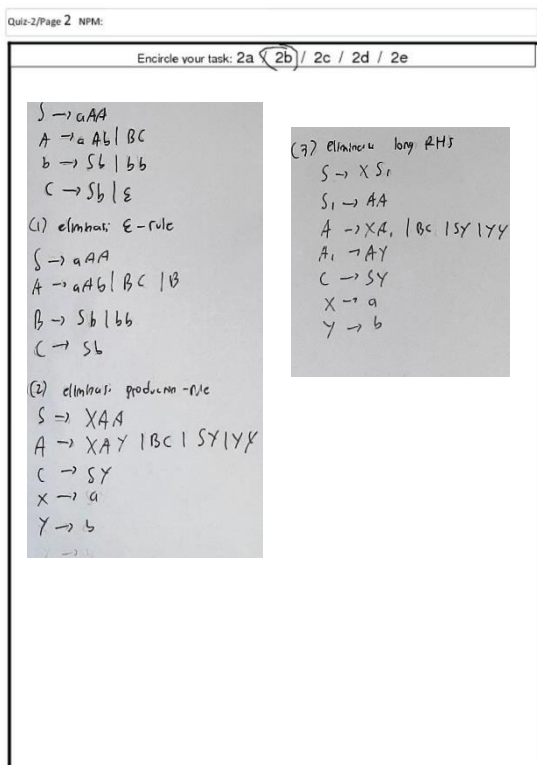 Quiz-2/Page 2 NPM:
Encircle your task: 2a / 2b / 2c / 2d / 2e
S → aAA
A → aAb | BC
b → Sb | bb
C → Sb | ε
(1) eliminasi ε-rule
S → aAA
A → aAb | BC | B
B → Sb | bb
C → Sb
(2) eliminasi production-rule
S → XAA
A → XAY | BC | SY | YY
C → SY
X → a
Y → b
(3) eliminasi long RHS
S → XS₁
S₁ → AA
A → XA₁ | BC | SY | YY
A₁ → AY
C → SY
X → a
Y → b